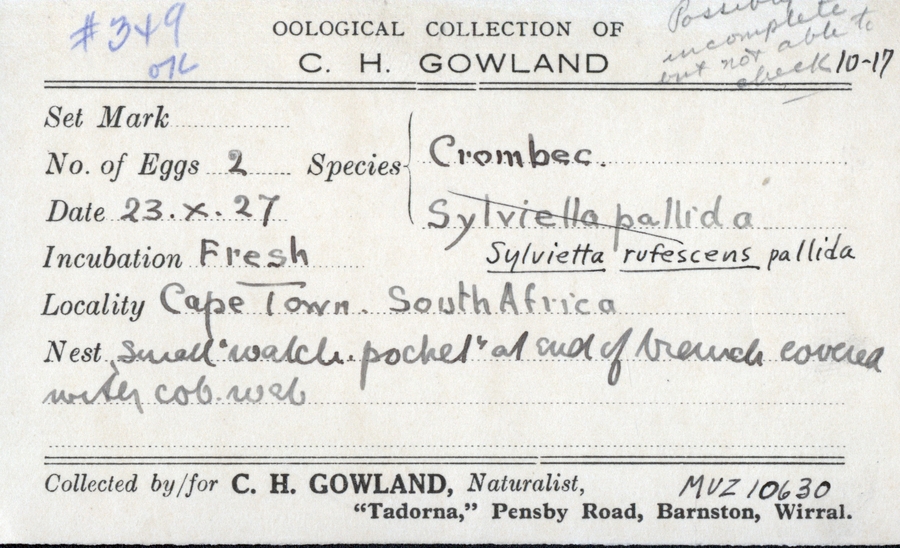 #349
OK
OOLOGICAL COLLECTION OF
C. H. GOWLAND
Possibly
incomplete
but not able to
check 10-17
Set Mark
No. of Eggs 2 Species Crombec.
Date 23.X.27 Sylviella pallida
Incubation Fresh Sylvietta rufescens pallida
Locality Cape Town. South Africa
Nest Small "watch.pocket" at end of branch covered
with cob.web
Collected by/for C. H. GOWLAND, Naturalist, MVZ 10630
"Tadorna," Pensby Road, Barnston, Wirral.